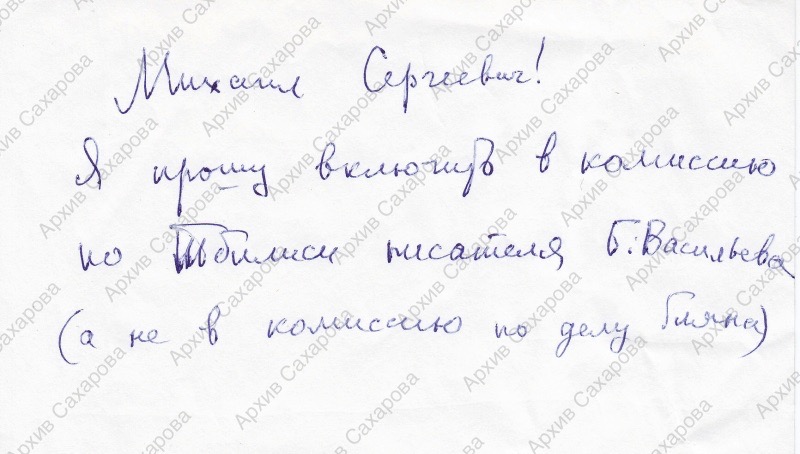 Михаил Сергеевич!
Я прошу включить в комиссию
по Тбилиси писателя Б. Васильева
(а не в комиссию по делу Гдляна)
Архив Сахарова